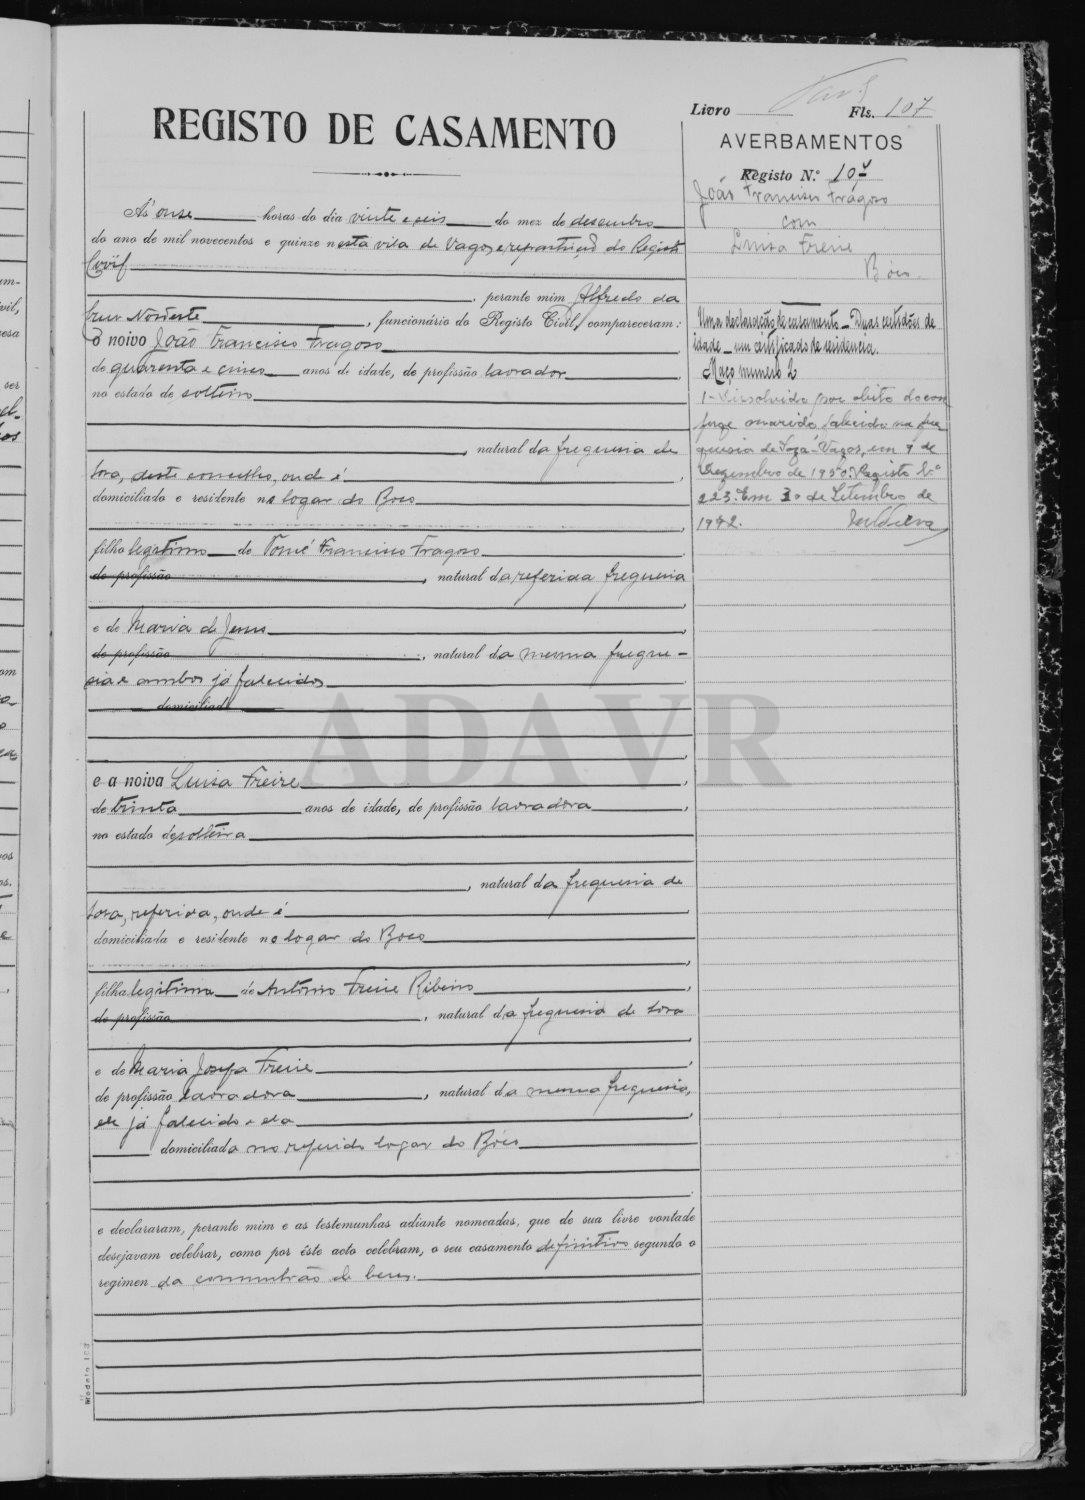 Livro Fls. 107
REGISTO DE CASAMENTO
AVERBAMENTOS
Registo N.º 107
João Francisco Fragoso
com
Luisa Freire
Bôco.
Ás onse horas do dia vinte e seis do mez de desembro
do ano de mil novecentos e quinze nesta vila de Vagos e repartição do Registo
Civil
, perante mim Alfredo da
Cruz Nordeste, funcionário do Registo Civil, compareceram:
O noivo João Francisco Fragoso
de quarenta e cinco anos de idade, de profissão lavrador
no estado de solteiro
, natural da freguesia de
Sosa, deste concelho, onde é
domiciliado e residente no logar do Boco
filho legitimo de Tomé Francisco Fragoso
de profissão, natural da referida freguesia
e de Maria de Jesus
de profissão, natural da mesma fregue-
sia e ambos já falecidos
domiciliad
e a noiva Luisa Freire
de trinta anos de idade, de profissão lavradora
no estado de solteira
, natural da freguesia de
Sosa, referida, onde é
domiciliada e residente no logar do Boco
filha legitima de Antonio Freire Ribeiro
de profissão, natural da freguesia de Sosa
e de Maria Josefa Freire
de profissão lavradora, natural da mesma freguesia,
ele já falecido e ela
domiciliada no referido logar do Bôco
e declararam, perante mim e as testemunhas adiante nomeadas, que de sua livre vontade
desejavam celebrar, como por êste acto celebram, o seu casamento definitivo segundo o
regimen da comunhão de bens.
Uma declaração de casamento _ Duas certidões de
idade _ um certificado de residencia.
Maço numero 2
1- Dissolvido por obito do con
juge marido falecido na fre
guesia de Soza-Vagos, em 9 de
Dezembro de 1950. Registo N.º
223. Em 30 de Setembro de
1972.
Modelo 103
ADAVR